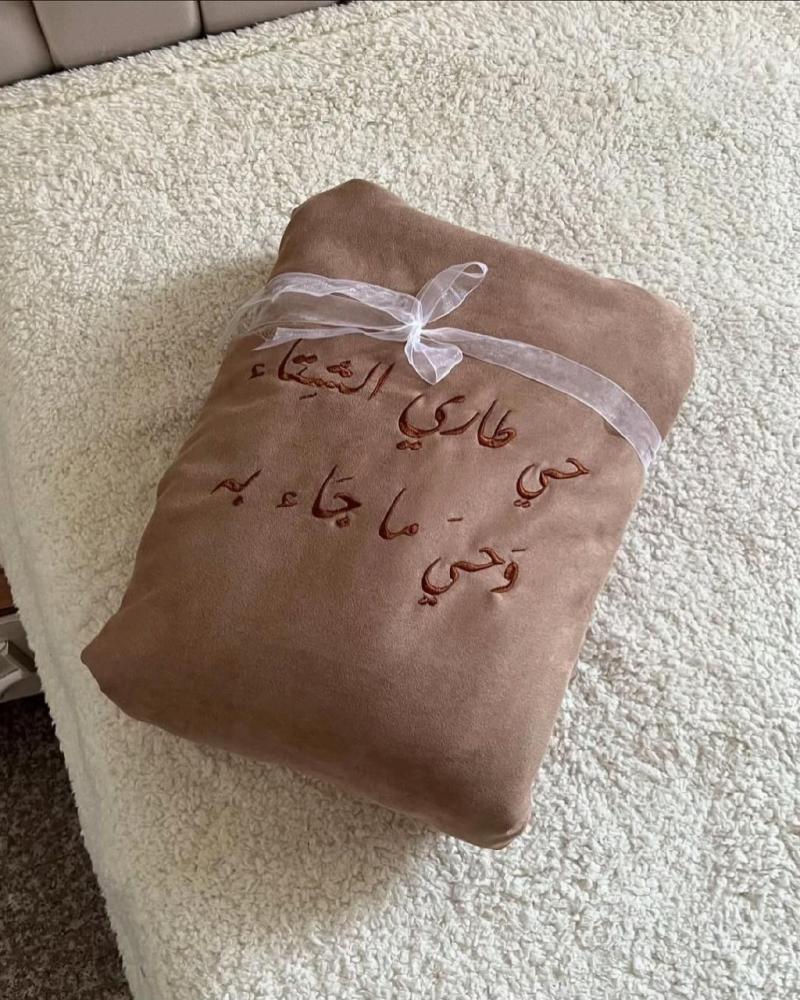 حي طاري الشتاء
وَحيَ ما جَاء به